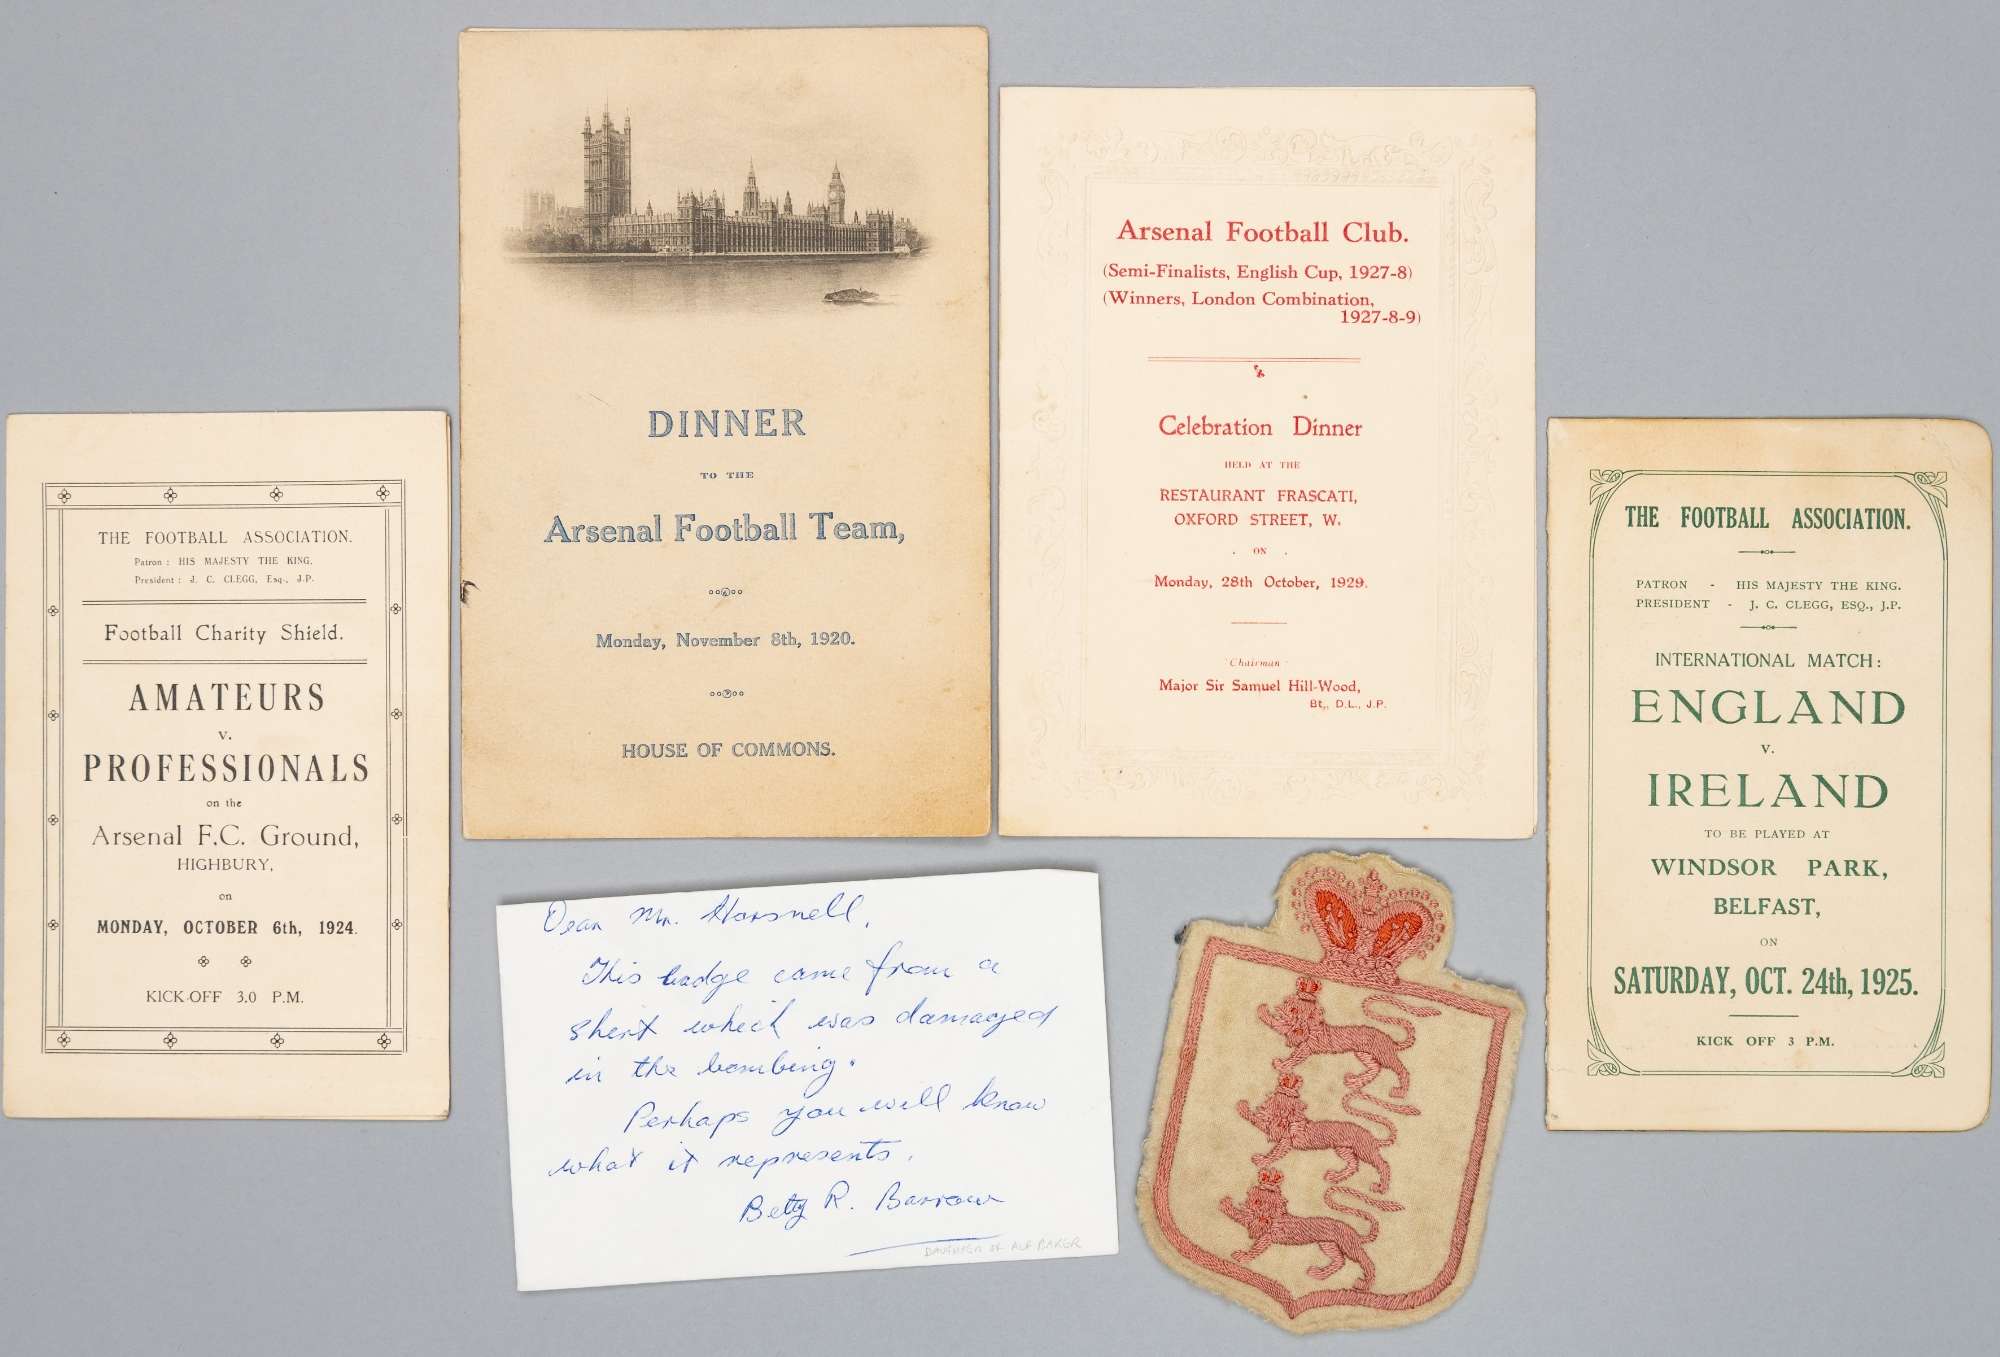 THE FOOTBALL ASSOCIATION.
Patron : HIS MAJESTY THE KING.
President : J. C. CLEGG, Esq., J.P.
Football Charity Shield.
AMATEURS
v.
PROFESSIONALS
on the
Arsenal F.C. Ground,
HIGHBURY,
on
MONDAY, OCTOBER 6th, 1924.
KICK-OFF 3.0 P.M.
DINNER
TO THE
Arsenal Football Team,
Monday, November 8th, 1920.
HOUSE OF COMMONS.
Arsenal Football Club.
(Semi-Finalists, English Cup, 1927-8)
(Winners, London Combination,
1927-8-9)
Celebration Dinner
HELD AT THE
RESTAURANT FRASCATI,
OXFORD STREET, W.
. ON .
Monday, 28th October, 1929.
Chairman
Major Sir Samuel Hill-Wood,
Bt., D.L., J.P.
THE FOOTBALL ASSOCIATION.
PATRON - HIS MAJESTY THE KING.
PRESIDENT - J. C. CLEGG, ESQ., J.P.
INTERNATIONAL MATCH:
ENGLAND
v.
IRELAND
TO BE PLAYED AT
WINDSOR PARK,
BELFAST,
ON
SATURDAY, OCT. 24th, 1925.
KICK OFF 3 P.M.
Dear Mr. Horsnell,
This badge came from a
shirt which was damaged
in the bombing.
Perhaps you will know
what it represents.
Betty R. Barrow
DAUGHTER OF ALF BAKER